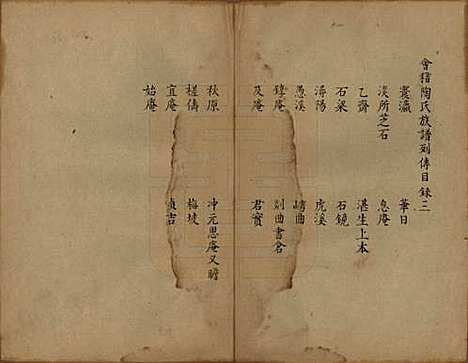 會稽陶氏族譜列傳目錄三
寰瀛 華日
淡所芝石 息庵
乙齋 湛生上本
石梁 石鏡
潯陽 虎溪
愚溪 崎曲
錞庵 剡曲書倉
及庵 君實
秋原 冲元思庵又瞻
槎儔 梅坡
宜庵 貞吉
始庵